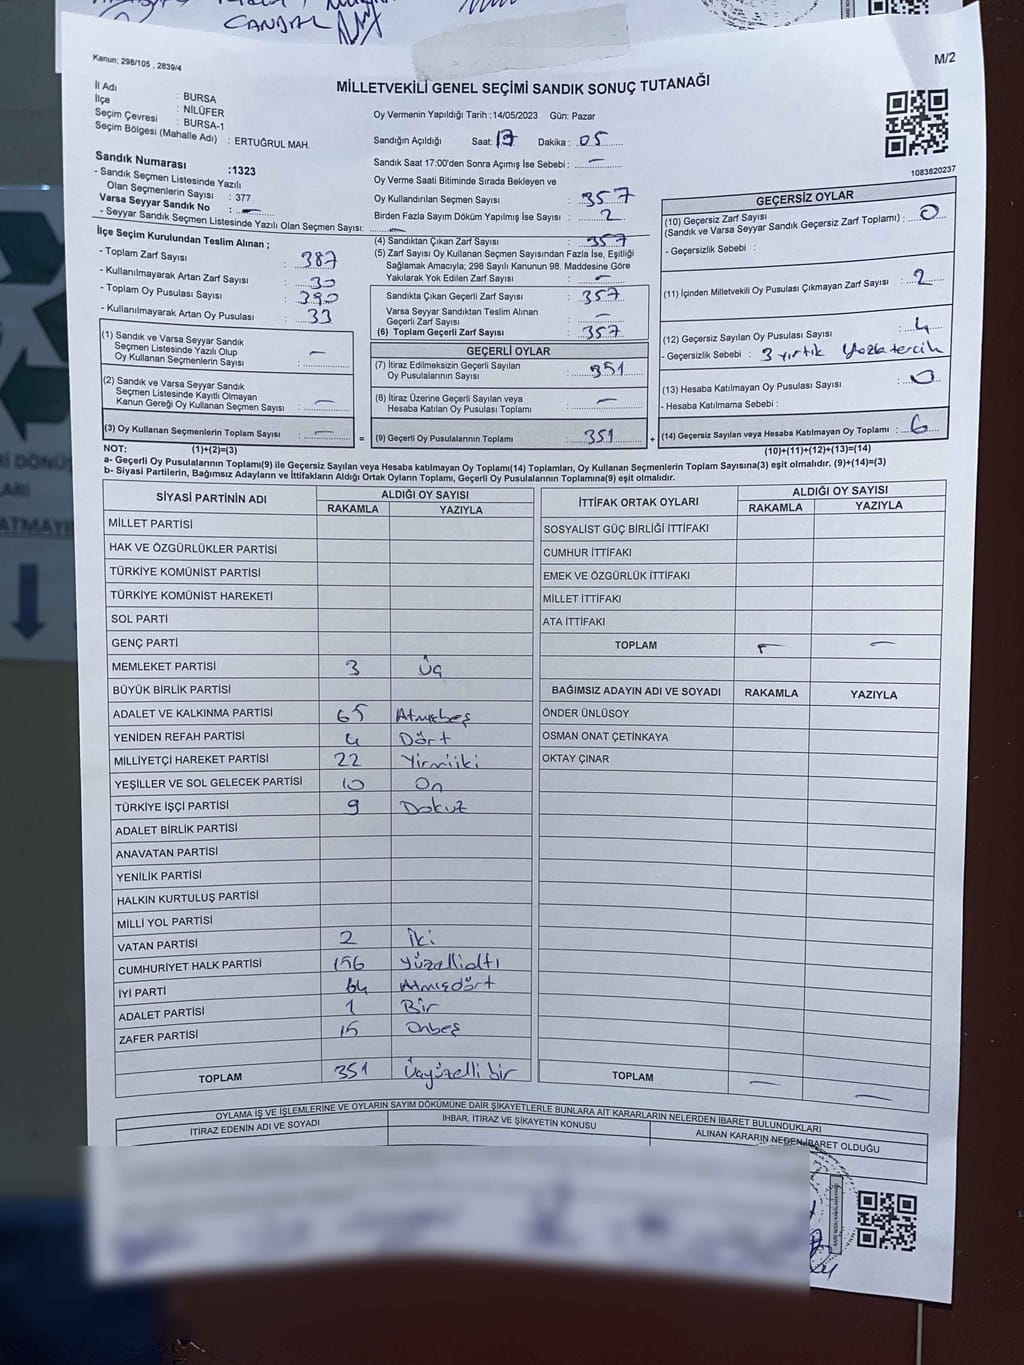 CANDAL
Kanun; 298/105 , 2839/4
M/2
MİLLETVEKİLİ GENEL SEÇİMİ SANDIK SONUÇ TUTANAĞI
İl Adı : BURSA
İlçe : NİLÜFER
Seçim Çevresi : BURSA-1
Seçim Bölgesi (Mahalle Adı) : ERTUĞRUL MAH.
Sandık Numarası :1323
- Sandık Seçmen Listesinde Yazılı
Olan Seçmenlerin Sayısı : 377
Varsa Seyyar Sandık No : —
- Seyyar Sandık Seçmen Listesinde Yazılı Olan Seçmen Sayısı: —
İlçe Seçim Kurulundan Teslim Alınan ;
- Toplam Zarf Sayısı : 387
- Kullanılmayarak Artan Zarf Sayısı : 30
- Toplam Oy Pusulası Sayısı : 390
- Kullanılmayarak Artan Oy Pusulası : 33
(1) Sandık ve Varsa Seyyar Sandık
Seçmen Listesinde Yazılı Olup
Oy Kullanan Seçmenlerin Sayısı : —
(2) Sandık ve Varsa Seyyar Sandık
Seçmen Listesinde Kayıtlı Olmayan
Kanun Gereği Oy Kullanan Seçmen Sayısı : —
(3) Oy Kullanan Seçmenlerin Toplam Sayısı : —
Oy Vermenin Yapıldığı Tarih :14/05/2023 Gün: Pazar
Sandığın Açıldığı Saat: 17 Dakika : 05
Sandık Saat 17:00'den Sonra Açımış İse Sebebi : —
Oy Verme Saati Bitiminde Sırada Bekleyen ve
Oy Kullandırılan Seçmen Sayısı : 357
Birden Fazla Sayım Döküm Yapılmış İse Sayısı : 2
(4) Sandıktan Çıkan Zarf Sayısı : 357
(5) Zarf Sayısı Oy Kullanan Seçmen Sayısından Fazla İse, Eşitliği
Sağlamak Amacıyla; 298 Sayılı Kanunun 98. Maddesine Göre
Yakılarak Yok Edilen Zarf Sayısı : —
Sandıkta Çıkan Geçerli Zarf Sayısı : 357
Varsa Seyyar Sandıktan Teslim Alınan
Geçerli Zarf Sayısı : —
(6) Toplam Geçerli Zarf Sayısı : 357
GEÇERLİ OYLAR
(7) İtiraz Edilmeksizin Geçerli Sayılan
Oy Pusulalarının Sayısı : 351
(8) İtiraz Üzerine Geçerli Sayılan veya
Hesaba Katılan Oy Pusulası Toplamı : —
= (9) Geçerli Oy Pusulalarının Toplamı : 351 +
1083820237
GEÇERSİZ OYLAR
(10) Geçersiz Zarf Sayısı
(Sandık ve Varsa Seyyar Sandık Geçersiz Zarf Toplamı) : 0
- Geçersizlik Sebebi :
(11) İçinden Milletvekili Oy Pusulası Çıkmayan Zarf Sayısı : 2
(12) Geçersiz Sayılan Oy Pusulası Sayısı : 4
- Geçersizlik Sebebi : 3 yırtık tercih
(13) Hesaba Katılmayan Oy Pusulası Sayısı : 0
- Hesaba Katılmama Sebebi :
(14) Geçersiz Sayılan veya Hesaba Katılmayan Oy Toplamı : 6
NOT: (1)+(2)=(3) (10)+(11)+(12)+(13)=(14)
a- Geçerli Oy Pusulalarının Toplamı(9) ile Geçersiz Sayılan veya Hesaba katılmayan Oy Toplamı(14) Toplamları, Oy Kullanan Seçmenlerin Toplam Sayısına(3) eşit olmalıdır. (9)+(14)=(3)
b- Siyasi Partilerin, Bağımsız Adayların ve İttifakların Aldığı Ortak Oyların Toplamı, Geçerli Oy Pusulalarının Toplamına(9) eşit olmalıdır.
SİYASİ PARTİNİN ADI ALDIĞI OY SAYISI
RAKAMLA YAZIYLA
MİLLET PARTİSİ
HAK VE ÖZGÜRLÜKLER PARTİSİ
TÜRKİYE KOMÜNİST PARTİSİ
TÜRKİYE KOMÜNİST HAREKETİ
SOL PARTİ
GENÇ PARTİ
MEMLEKET PARTİSİ 3 Üç
BÜYÜK BİRLİK PARTİSİ
ADALET VE KALKINMA PARTİSİ 65 Atmışbeş
YENİDEN REFAH PARTİSİ 4 Dört
MİLLİYETÇİ HAREKET PARTİSİ 22 Yirmiiki
YEŞİLLER VE SOL GELECEK PARTİSİ 10 On
TÜRKİYE İŞÇİ PARTİSİ 9 Dokuz
ADALET BİRLİK PARTİSİ
ANAVATAN PARTİSİ
YENİLİK PARTİSİ
HALKIN KURTULUŞ PARTİSİ
MİLLİ YOL PARTİSİ
VATAN PARTİSİ 2 İki
CUMHURİYET HALK PARTİSİ 156 Yüzellialtı
İYİ PARTİ 64 Atmışdört
ADALET PARTİSİ 1 Bir
ZAFER PARTİSİ 15 Onbeş
TOPLAM 351 Üçyüzelli bir
İTTİFAK ORTAK OYLARI ALDIĞI OY SAYISI
RAKAMLA YAZIYLA
SOSYALİST GÜÇ BİRLİĞİ İTTİFAKI
CUMHUR İTTİFAKI
EMEK VE ÖZGÜRLÜK İTTİFAKI
MİLLET İTTİFAKI
ATA İTTİFAKI
TOPLAM — —
BAĞIMSIZ ADAYIN ADI VE SOYADI RAKAMLA YAZIYLA
ÖNDER ÜNLÜSOY
OSMAN ONAT ÇETİNKAYA
OKTAY ÇINAR
TOPLAM — —
OYLAMA İŞ VE İŞLEMLERİNE VE OYLARIN SAYIM DÖKÜMÜNE DAİR ŞİKAYETLERLE BUNLARA AİT KARARLARIN NELERDEN İBARET BULUNDUKLARI
İTİRAZ EDENİN ADI VE SOYADI İHBAR, İTİRAZ VE ŞİKAYETİN KONUSU ALINAN KARARIN NEDEN İBARET OLDUĞU